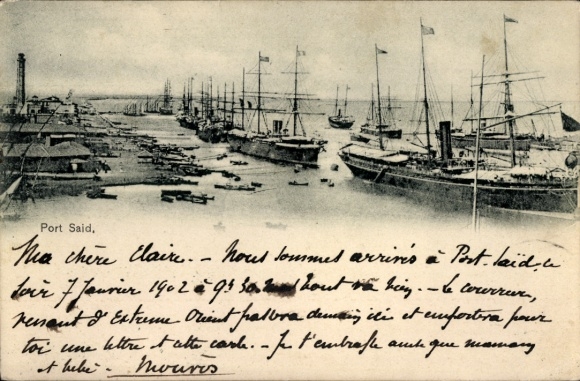 Port Said.
Ma chère Claire. - Nous sommes arrivés à Port-Saïd, ce
soir 7 Janvier 1902 à 9h tout va bien. - Le courrier,
venant d'Extrême Orient passera demain ici et emportera pour
toi une lettre et cette carte. - Je t'embrasse ainsi que maman
et bébé.